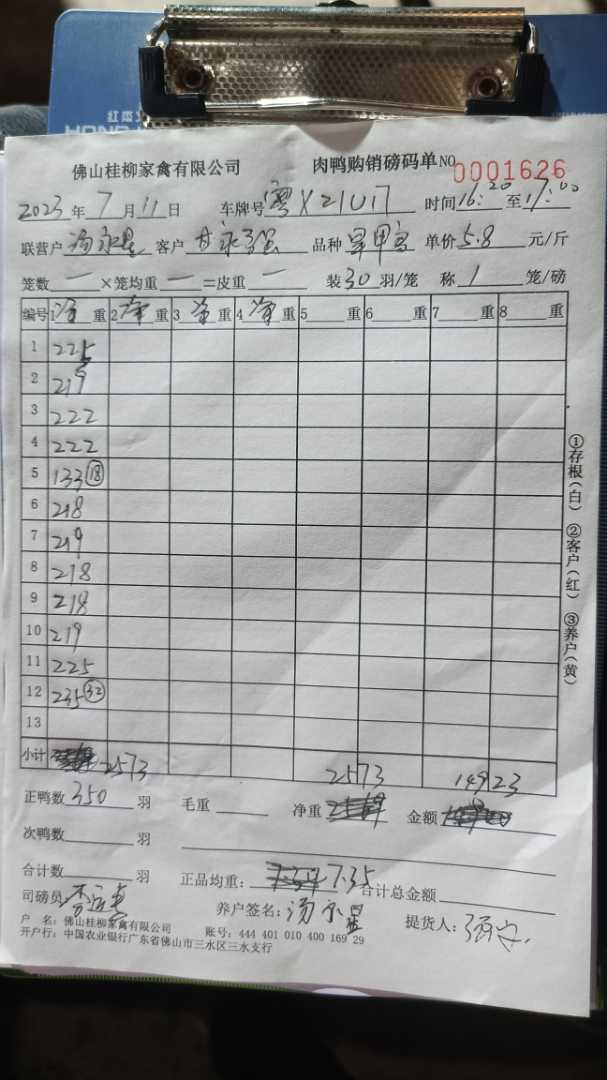 红杰
佛山桂柳家禽有限公司 肉鸭购销磅码单 NO 0001626
2023年7月11日 车牌号 粤X21U17 时间16:20至17:00
联营户 汤永星 客户 甘永强 品种 单价5.8元/斤
笼数 一 ×笼均重 一 =皮重 一 装30羽/笼 称1笼/磅
编号 1净重 2净重 3净重 4净重 5重 6重 7重 8重
1 225
2 219
3 222
4 222
5 133 ⑱
6 218
7 219
8 218
9 218
10 219
11 225
12 235 ㉜
13
小计 2573 2573 14923
正鸭数350羽 毛重 净重 金额
次鸭数 羽
合计数 羽 正品均重: 7.35 合计总金额
司磅员 养户签名: 汤永星 提货人:
户 名: 佛山桂柳家禽有限公司 账号: 444 401 010 400 169 29
开户行: 中国农业银行广东省佛山市三水区三水支行
①存根(白) ②客户(红) ③养户(黄)